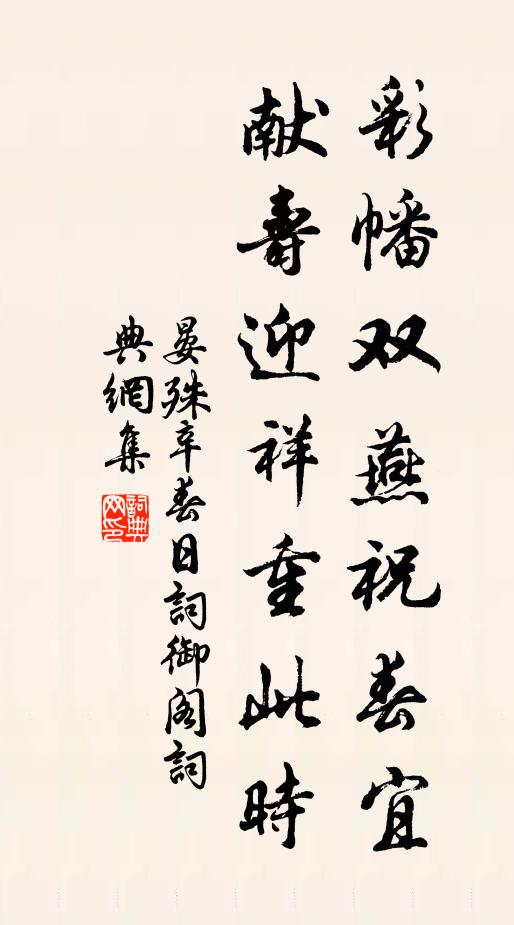 彩幡双燕祝春宜
献壽迎祥重此時
晏殊辛春日詞御阁詞
典網集
詞典网印